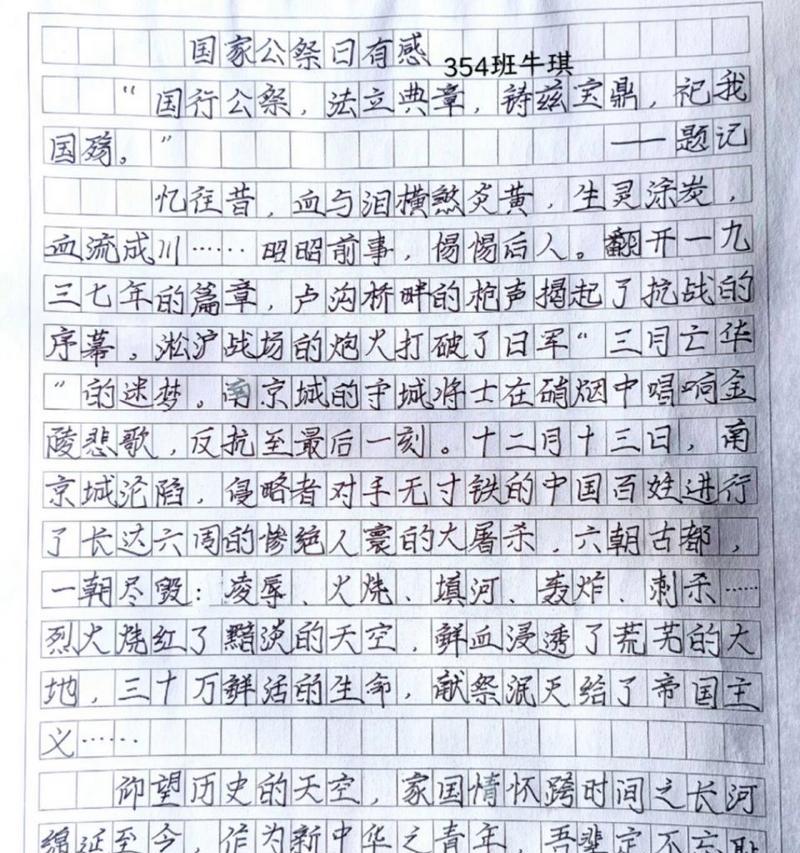 国家公祭日有感 354班牛琪
“国行公祭，法立典章，铸兹宝鼎，祀我
国殇。” ——题记
忆往昔，血与泪横煞炎黄，生灵涂炭，
血流成川……昭昭前事，惕惕后人。翻开一九
三七年的篇章，卢沟桥畔的枪声揭起了抗战的
序幕。淞沪战场的炮火打破了日军“三月亡华
”的迷梦。南京城的守城将士在硝烟中唱响金
陵悲歌，反抗至最后一刻。十二月十三日，南
京城沦陷，侵略者对手无寸铁的中国百姓进行
了长达六周的惨绝人寰的大屠杀，六朝古都，
一朝尽毁：凌辱、火烧、填河、轰炸、刺杀……
烈火烧红了黯淡的天空，鲜血浸透了荒芜的大
地，三十万鲜活的生命，献祭泯灭给了帝国主
义……
仰望历史的天空，家国情怀跨时间之长河
绵延至今，作为新中华之青年，吾辈定不忘耻